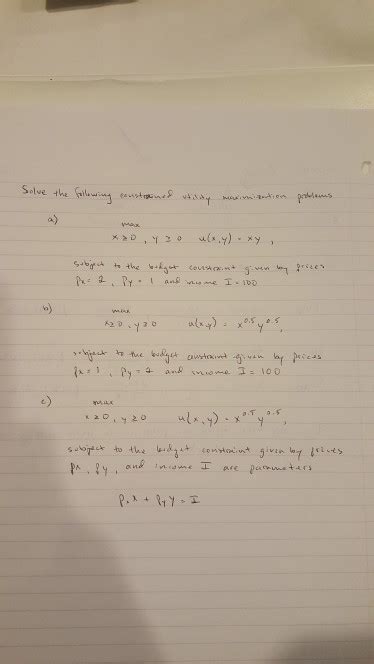 Solve the following constrained utility maximization problems
a)
max
x≥0, y≥0 u(x,y) = xy,
subject to the budget constraint given by prices
Px = 2, Py = 1 and income I = 100
b)
max
x≥0, y≥0 u(x,y) = x^0.5 y^0.5,
subject to the budget constraint given by prices
Px = 1, Py = 2 and income I = 100
c)
max
x≥0, y≥0 u(x,y) = x^0.5 y^0.5,
subject to the budget constraint given by prices
Px, Py, and income I are parameters
Pxx + Pyy = I